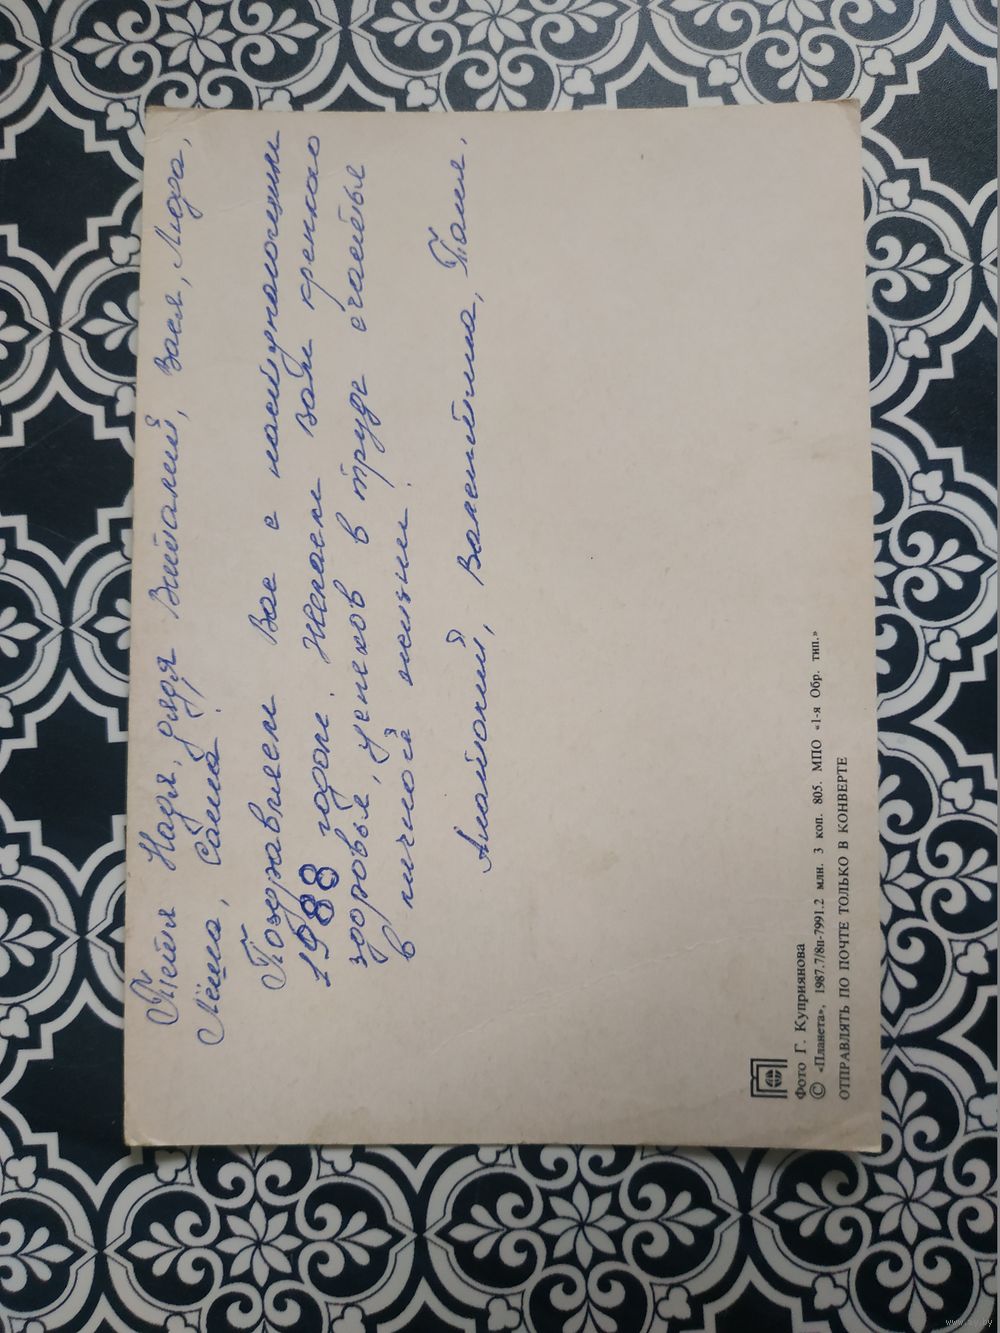 Тётя Надя, дядя Виталий, Вася, Люда,
Лёша, Саша!
Поздравляем Вас с наступающим
1988 годом. Желаем Вам крепкого
здоровья, успехов в труде счастья
в личной жизни.
Анатолий, Валентина, Толя.
Фото Г. Куприянова
© «Планета», 1987.7/8п-7991.2 млн. 3 коп. 805. МПО «1-я Обр. тип.»
ОТПРАВЛЯТЬ ПО ПОЧТЕ ТОЛЬКО В КОНВЕРТЕ
www.ay.by